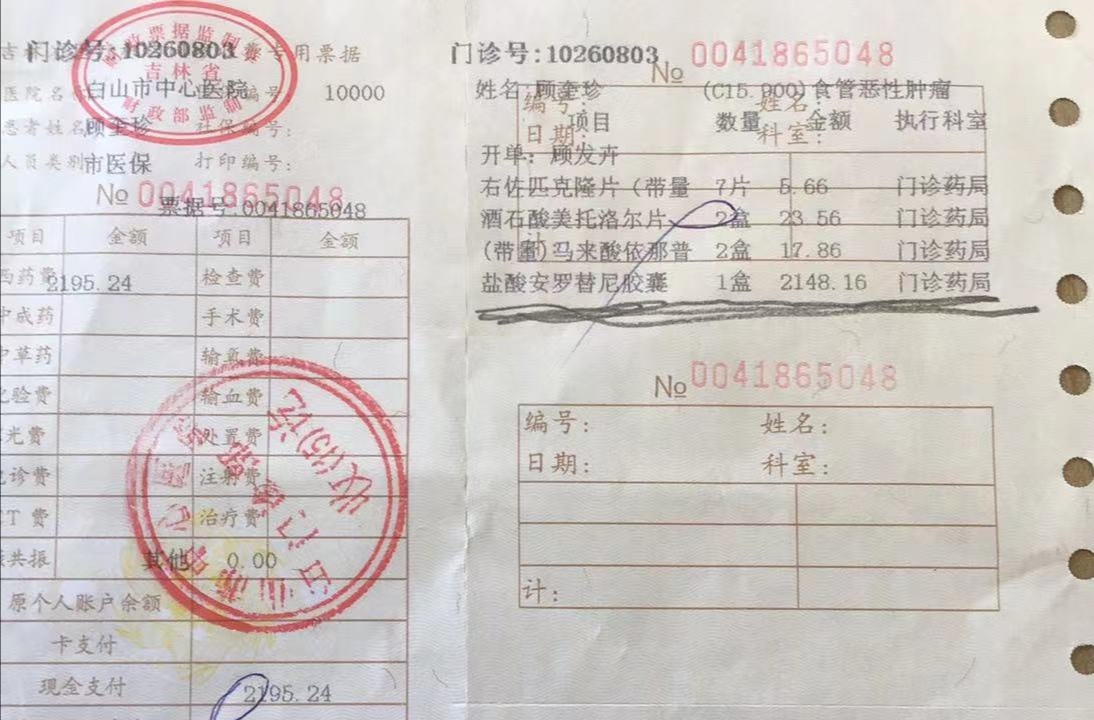 门诊号:10260803
费专用票据
财政票据监制
吉林省
财政部监制
医院名 白山市中心医院 编号 10000
患者姓名 顾奎珍 社保编号:
人员类别 市医保 打印编号:
No 0041865048
票据号:0041865048
项目 金额 项目 金额
西药费 2195.24 检查费
中成药 手术费
中草药 输氧费
化验费 输血费
光费 处置费
诊费 注射费
CT 费 治疗费
共振 其他 0.00
原个人账户余额
卡支付
现金支付 2195.24
白山市中心医院
门诊
收(15)
门诊号:10260803 No 0041865048
姓名:顾奎珍 (C15.900)食管恶性肿瘤
编号: 姓名:
项目 数量 金额 执行科室
日期: 科室:
开单: 顾发卉
右佐匹克隆片(带量 7片 5.66 门诊药局
酒石酸美托洛尔片 2盒 23.56 门诊药局
(带量)马来酸依那普 2盒 17.86 门诊药局
盐酸安罗替尼胶囊 1盒 2148.16 门诊药局
No 0041865048
编号: 姓名:
日期: 科室:
计: